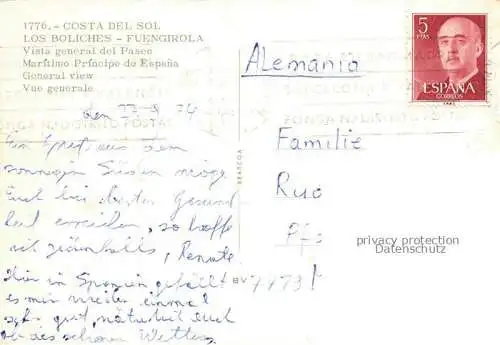 1776.- COSTA DEL SOL
LOS BOLICHES - FUENGIROLA
Vista general del Paseo
Marítimo Príncipe de España
General view
Vue generale
den 23-9 74
Ein Gruß aus dem
sonnigen Süden möge
Euch bei bester Gesund
heit erreichen, so hoffe
ich jedenfalls, Renate
Hier in Spanien gefällt
es mir wieder einmal
sehr gut, natürlich auch
des schönen Wetters.
Alemania
5
PTAS
ESPAÑA
CORREOS
Familie
Ruo
privacy protection
Datenschutz
BEASCOA
BV